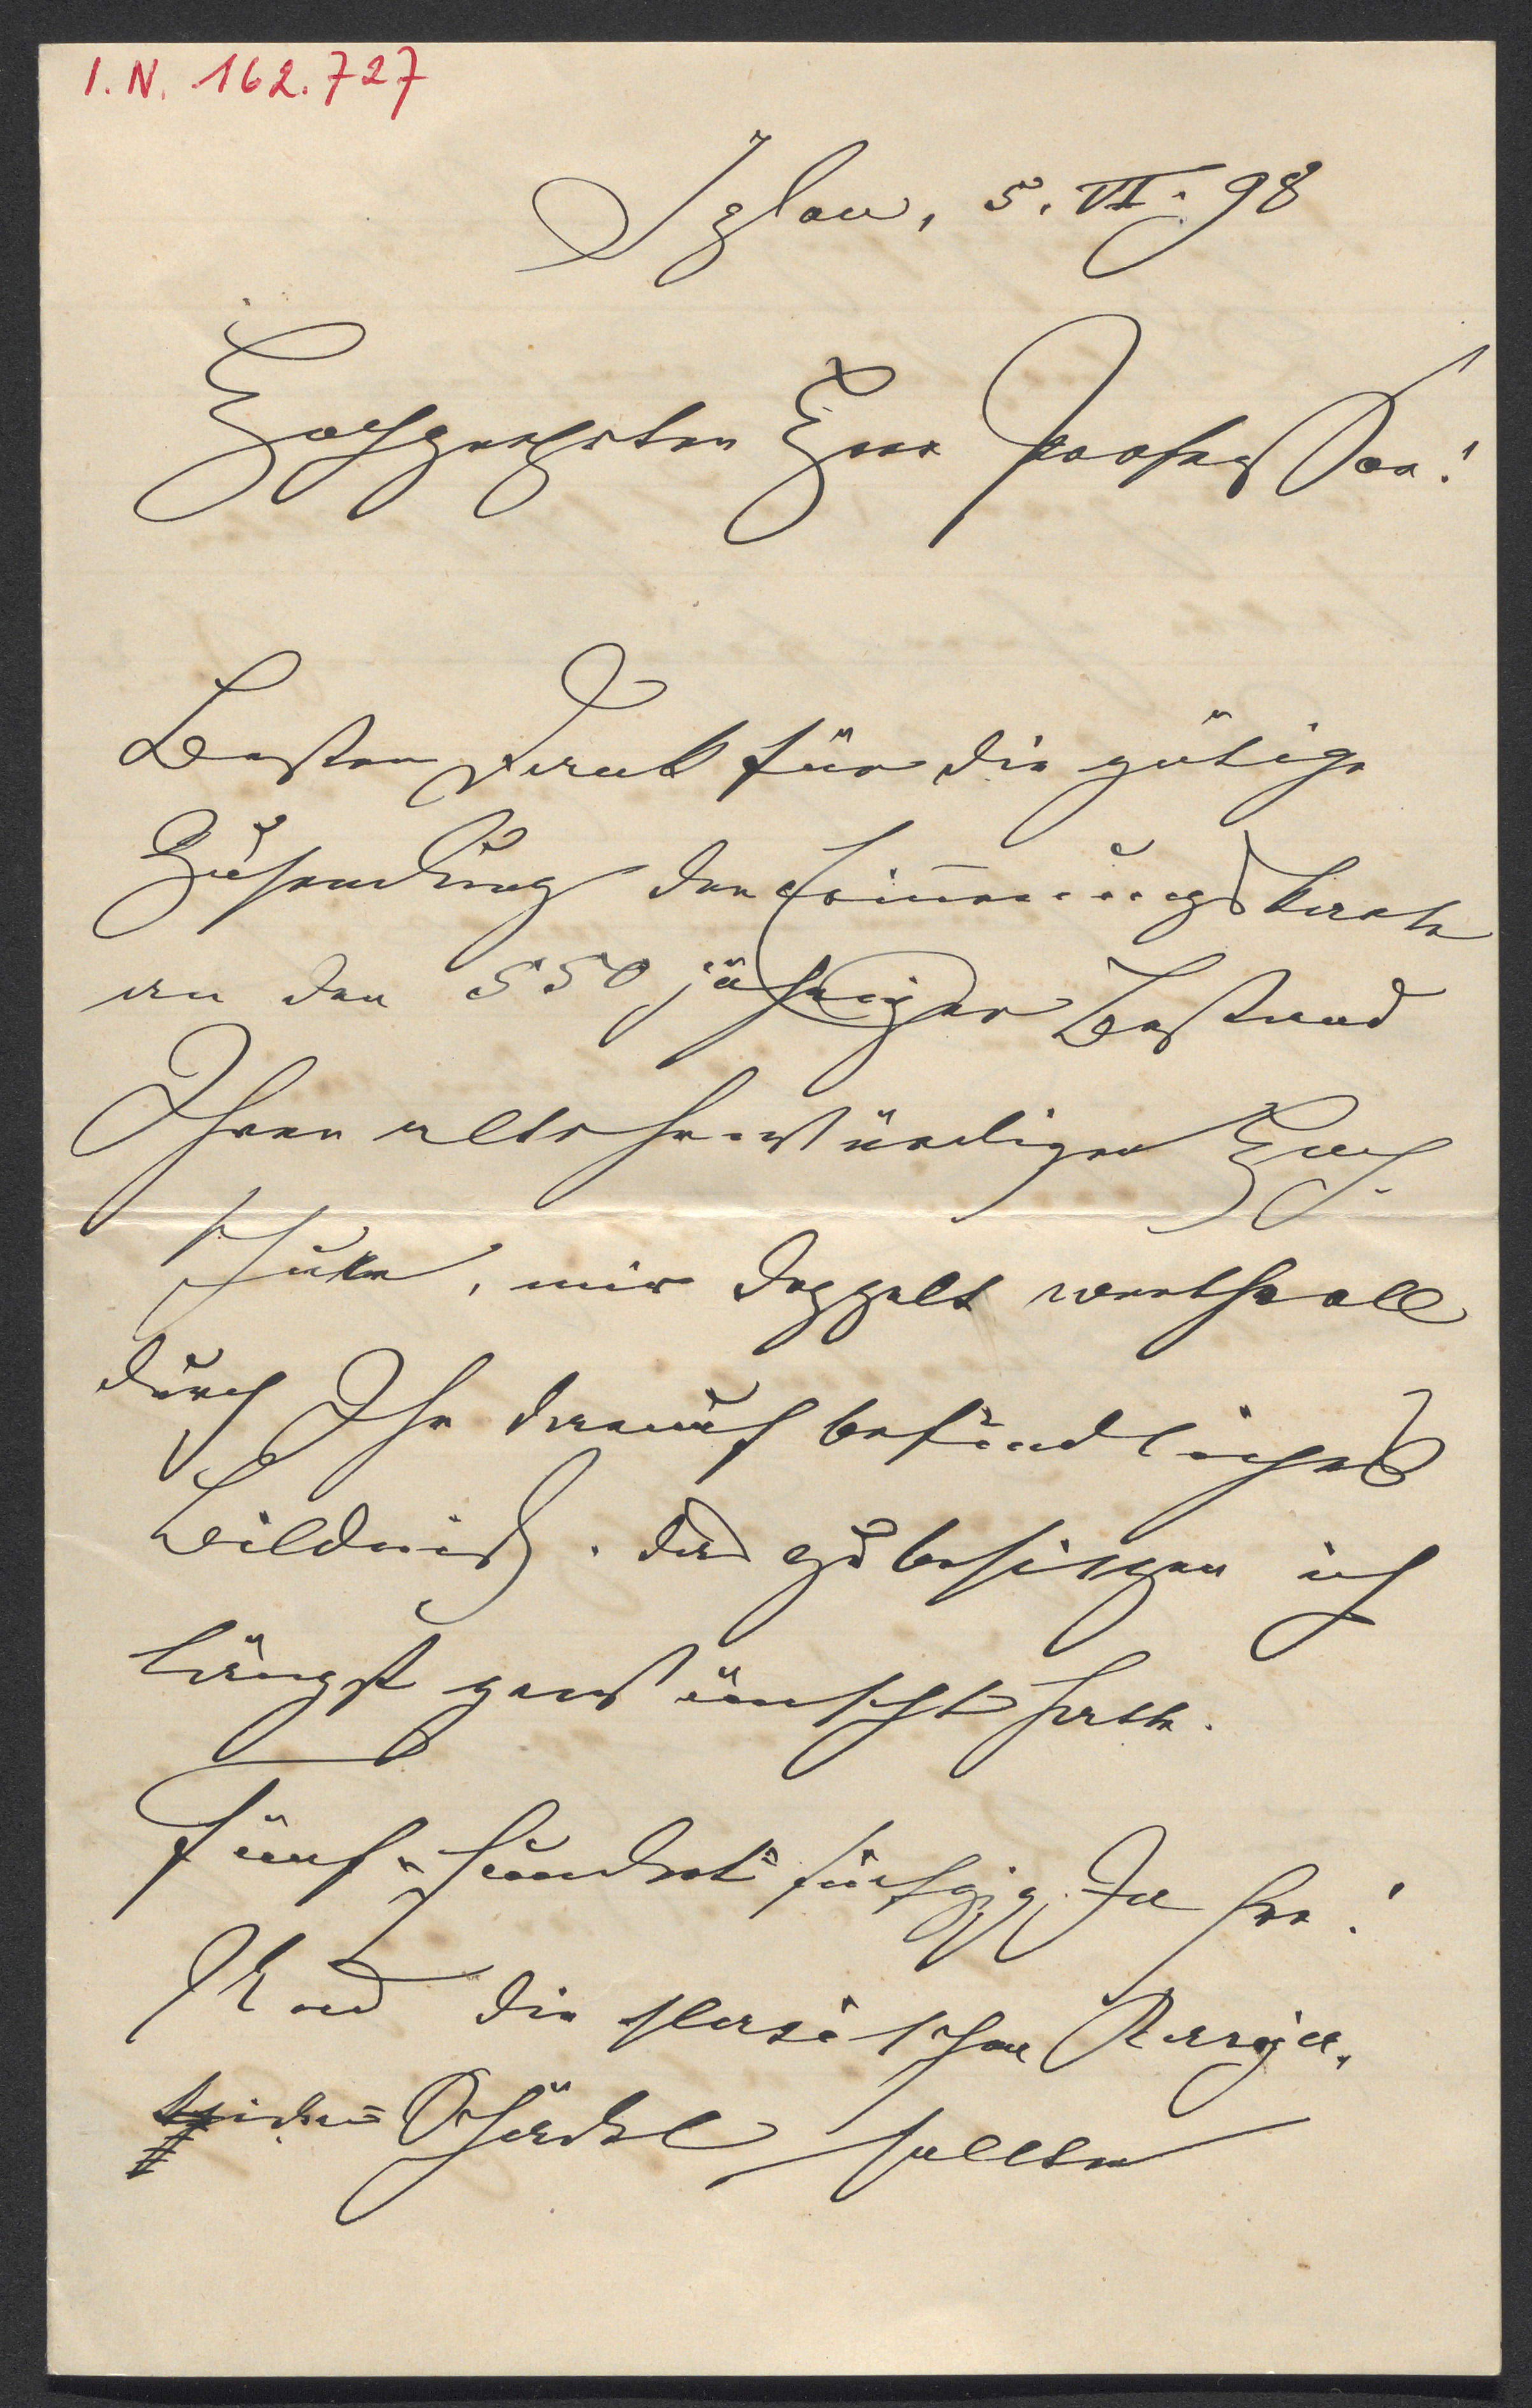 I.N. 162.727
Iglau, 5. VI. 98
Hochgeehrter Herr Professor!
Besten Dank für die gütige
Zusendung der Erinnerungskarte
an den 550 jährigen Bestand
Ihrer altehrwürdigen Hoch-
schule, mir doppelt werthvoll
durch Ihr darauf befindliches
Bildniß, das zu besitzen ich
längst gewünscht hatte.
Fünf-hundert fünfzig Jahre!
Und die slavischen
Schädel sollten